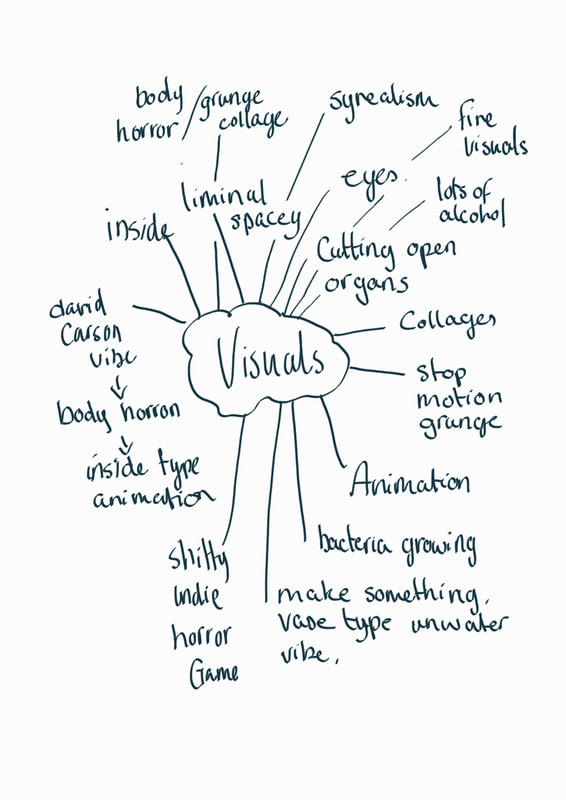 body
horror / grunge
collage
syrealism
fire
visuals
eyes.
lots of
alcohol
liminal
spacey
inside
Cutting open
organs
david
Carson
vibe
body horror
inside type
animation
Visuals
Collages
stop
motion
grunge
Animation
bacteria growing
shitty
indie
horror
Game
make something,
vase type unwater
vibe,